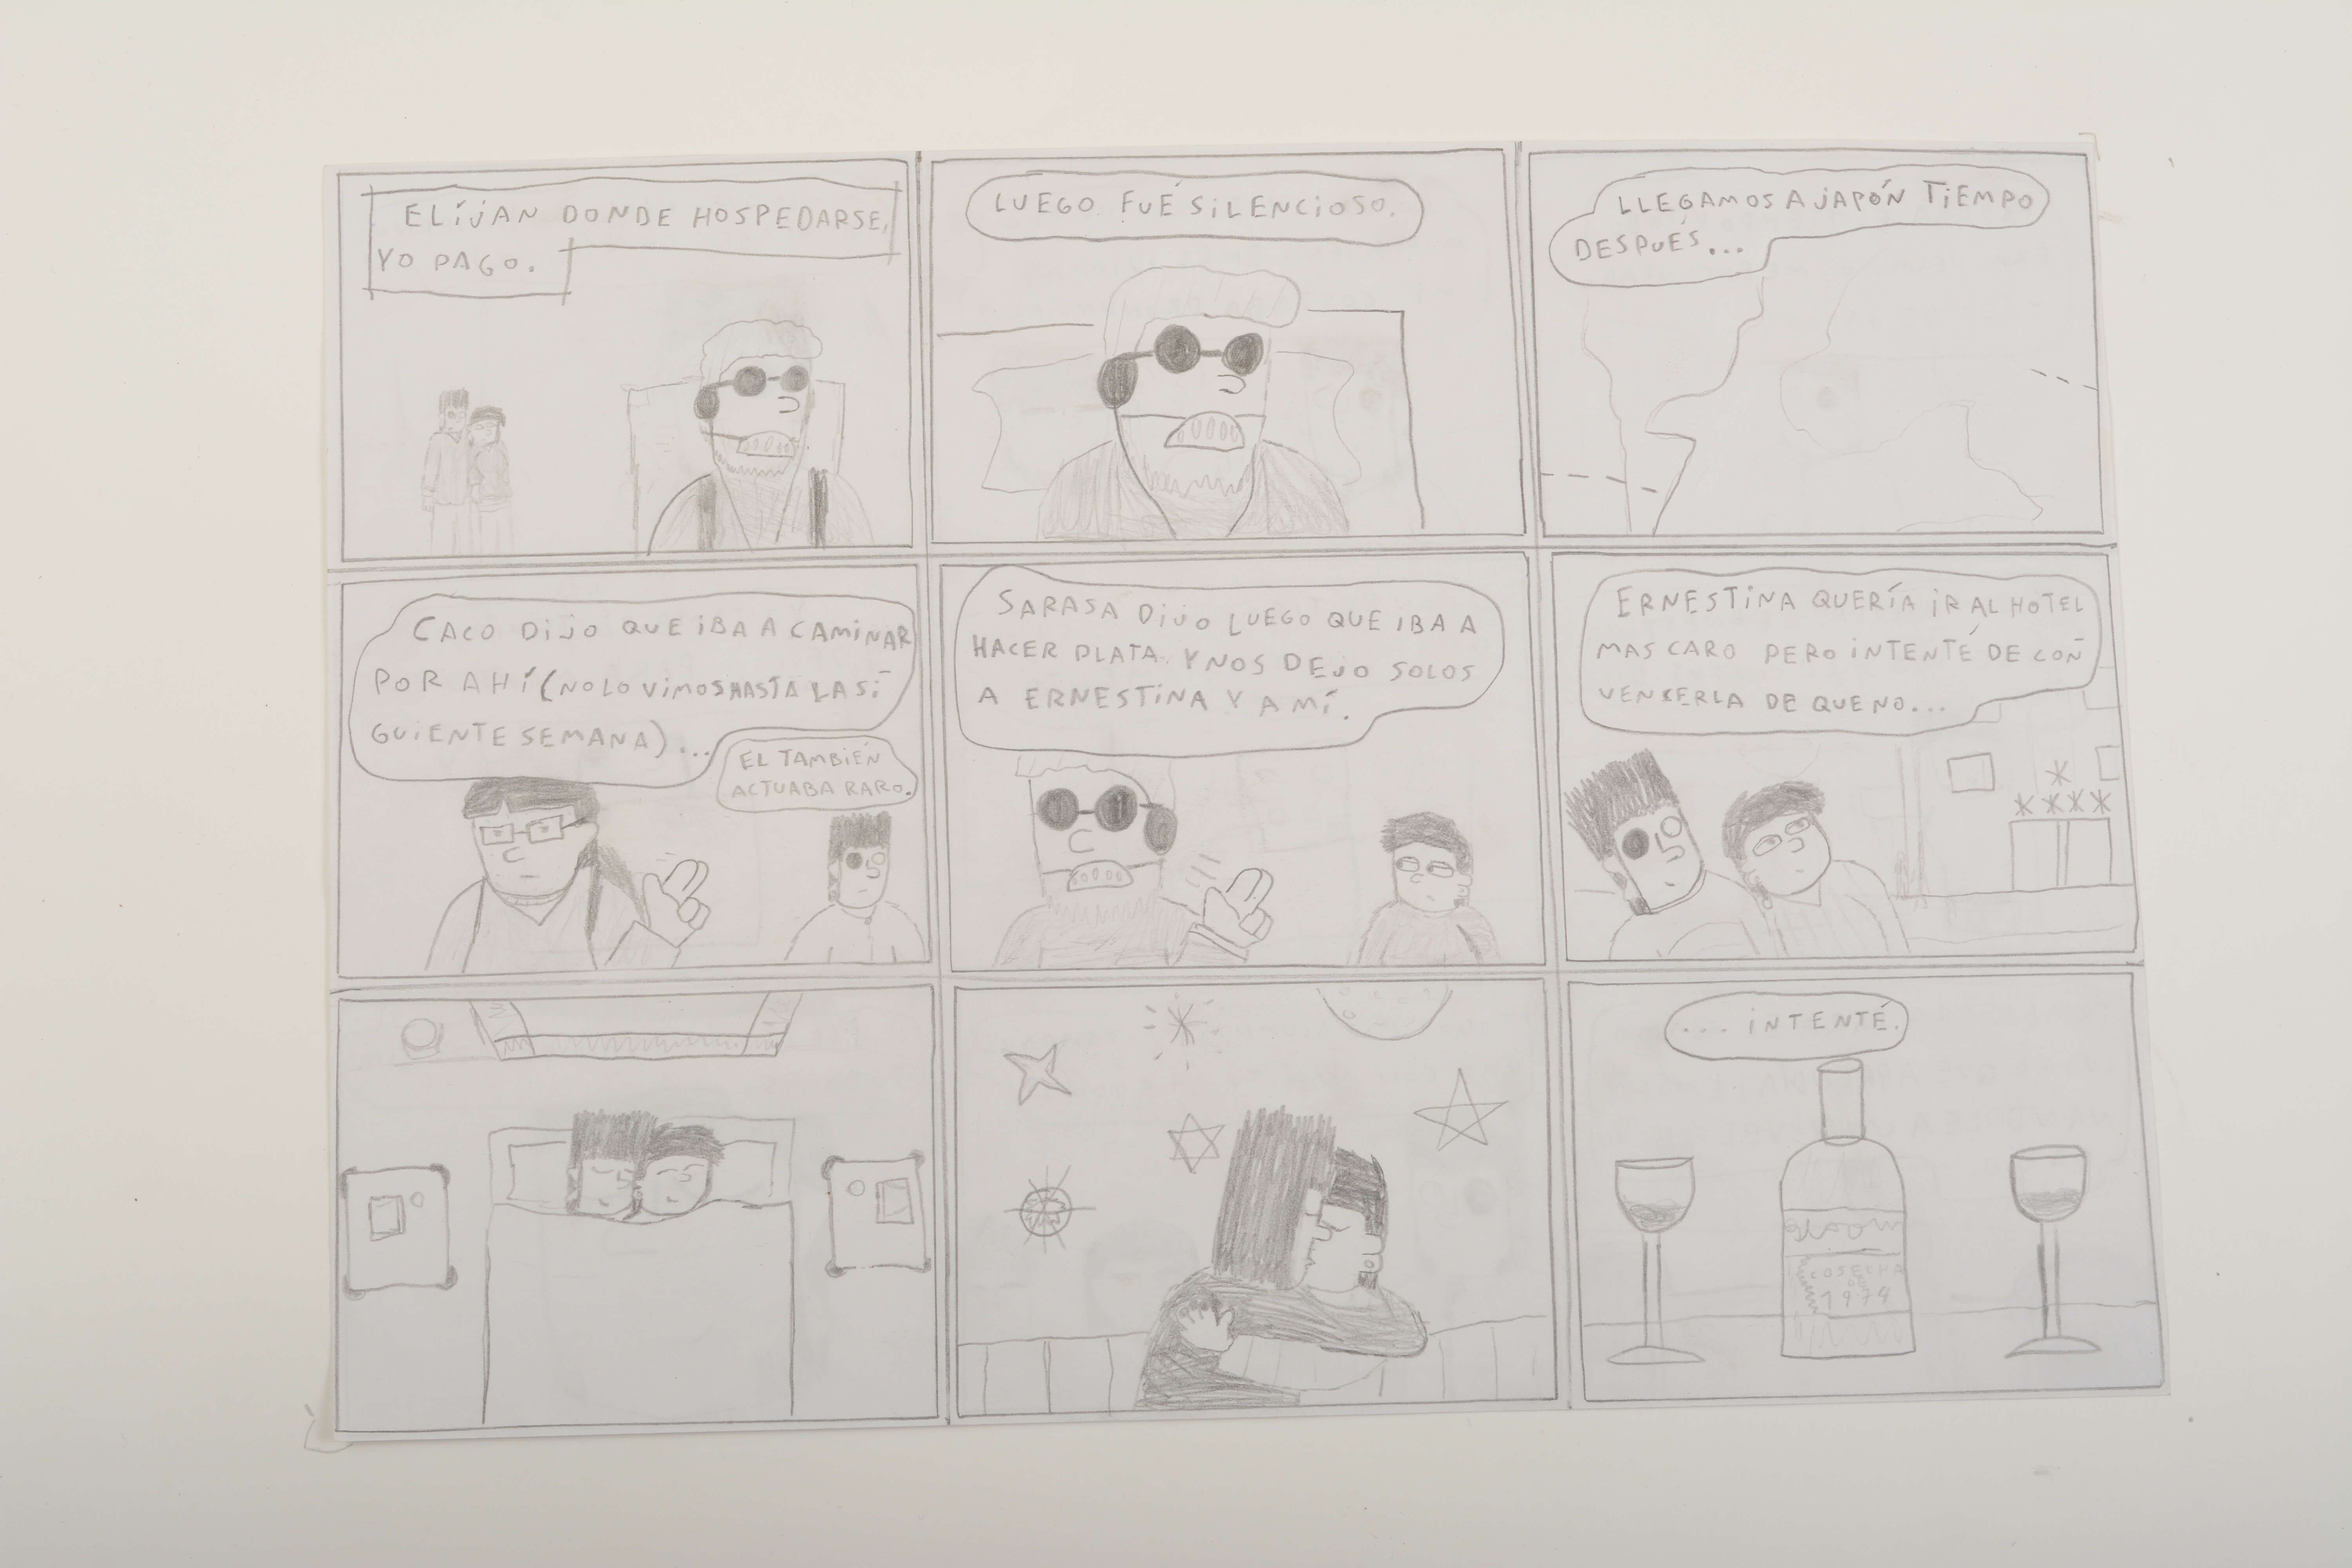 ELÍJAN DONDE HOSPEDARSE,
YO PAGO.
LUEGO FUÉ SILENCIOSO.
LLEGAMOS A JAPÓN TIEMPO
DESPUÉS...
CACO DIJO QUE IBA A CAMINAR
POR AHÍ (NO LO VIMOS HASTA LA SI-
GUIENTE SEMANA)...
EL TAMBIÉN
ACTUABA RARO.
SARASA DIJO LUEGO QUE IBA A
HACER PLATA. Y NOS DEJO SOLOS
A ERNESTINA Y A MÍ.
ERNESTINA QUERÍA IR AL HOTEL
MAS CARO PERO INTENTÉ DE CON-
VENCERLA DE QUE NO...
... INTENTÉ.
COSECHA
1974